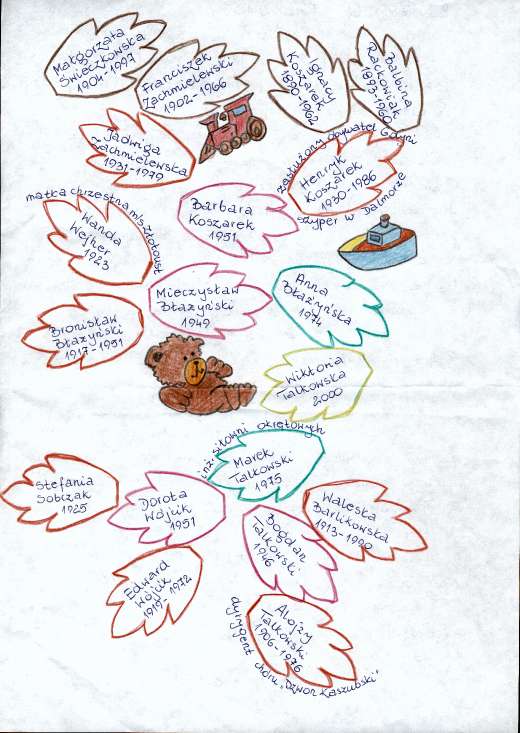 Małgorzata
Świeczkowska
1904-1997
Franciszek
Żachmielewski
1902-1966
Ignacy
Koszarek
1890-1962
Balbina
Rackowiak
1893-1960
Jadwiga
Żachmielewska
1931-1979
zasłużony obywatel Gdyni
Henryk
Koszarek
1930-1986
szyper w Dalmorze
matka chrzestna m/s Żółtoust
Wanda
Wejher
1923
Barbara
Koszarek
1951
Mieczysław
Błażyński
1949
Anna
Błażyńska
1974
Bronisław
Błażyński
1917-1991
Wiktoria
Talkowska
2000
inż. siłowni okrętowych
Marek
Talkowski
1975
Stefania
Sobczak
1925
Dorota
Wójcik
1951
Waleska
Barlikowska
1913-1990
Bogdan
Talkowski
1946
Edward
Wójcik
1919-1972
Alojzy
Talkowski
1906-1976
dyrygent chóru „Dzwon Kaszubski"